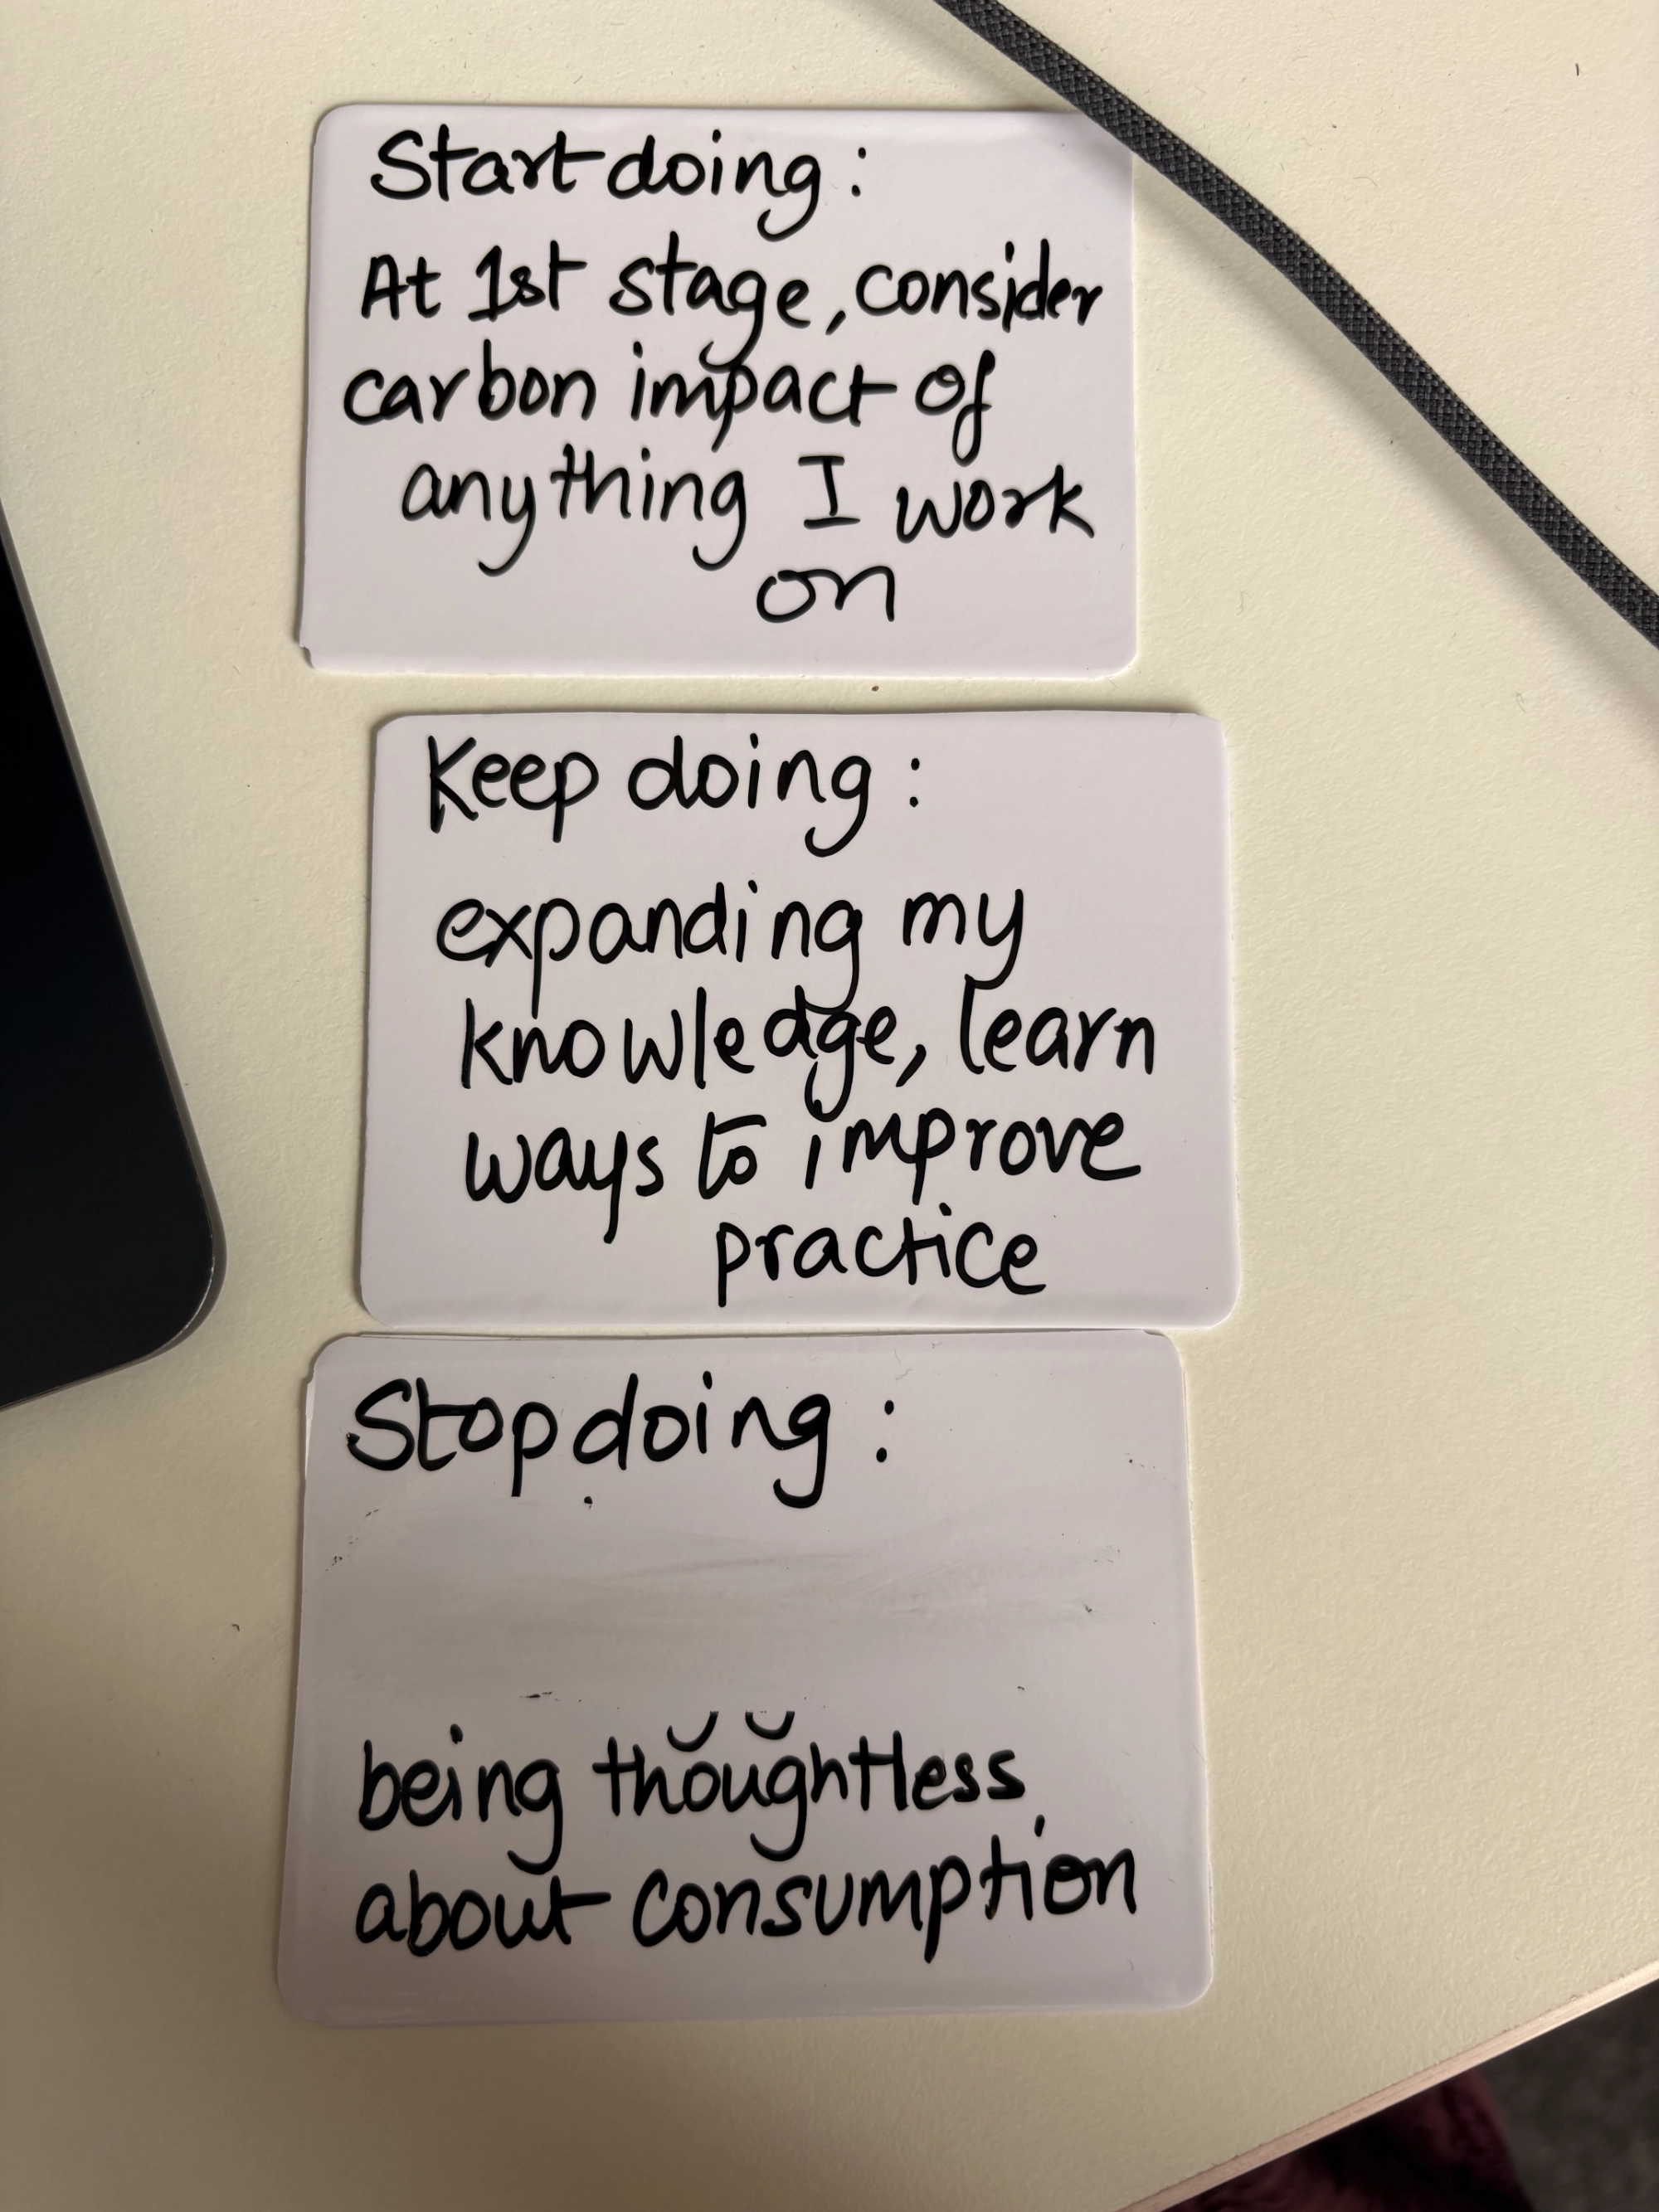 Start doing:
At 1st stage, consider
carbon impact of
anything I work
on
Keep doing:
expanding my
knowledge, learn
ways to improve
practice
Stop doing:
being thoughtless
about consumption